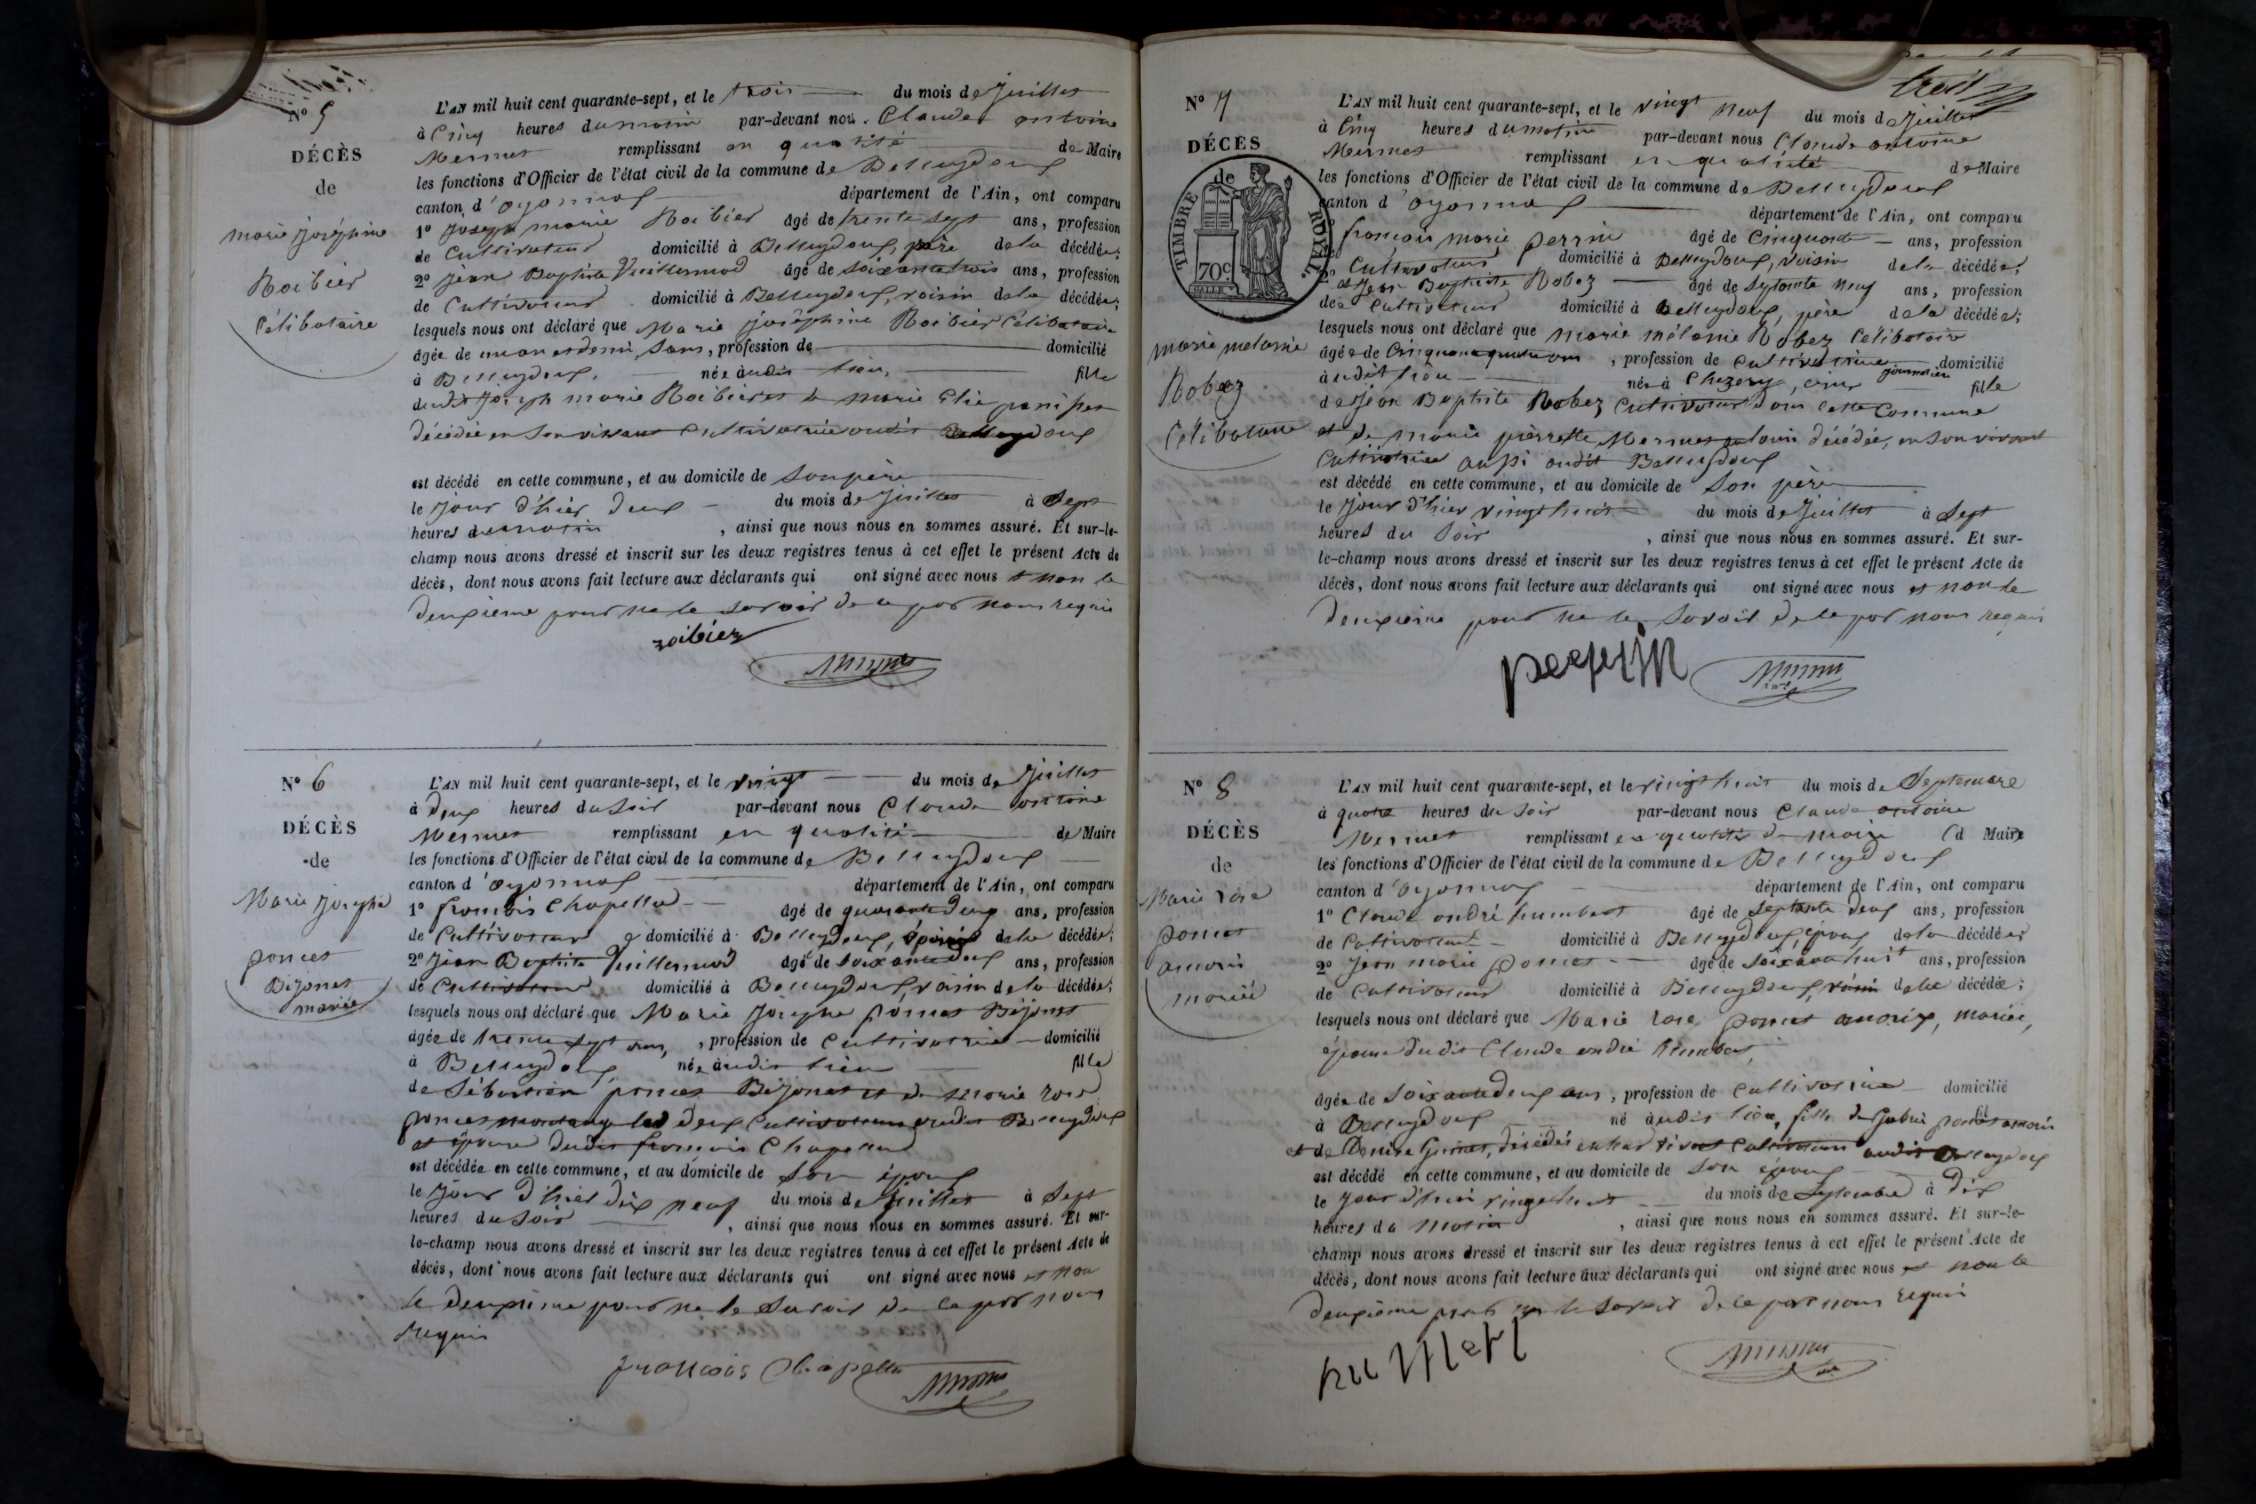 N° 5
DÉCÈS
de
marie joséphine
Roibier
Célibataire
L'AN mil huit cent quarante-sept, et le trois du mois de Juillet
à Cinq heures du matin par-devant nous Claude antoine
Mermet remplissant en qualité de Maire
les fonctions d'Officier de l'état civil de la commune de Belleydoux
canton d'oyonnax département de l'Ain, ont comparu
1° Joseph marie Roibier âgé de trente sept ans, profession
de Cultivateur domicilié à Belleydoux, père de la décédée;
2° Jean Baptiste Vuillermod âgé de soixante trois ans, profession
de Cultivateur domicilié à Belleydoux, voisin de la décédée;
lesquels nous ont déclaré que Marie joséphine Roibier Célibataire
âgée de un an et demi, Sans, profession de domicilié
à Belleydoux, née àudit lieu, fille
dudit Joseph marie Roibier et de marie
décédée en son vivant Cultivatrice audit Belleydoux
est décédé en cette commune, et au domicile de Son père
le jour d'hier deux du mois de Juillet à Sept
heures du matin, ainsi que nous nous en sommes assuré. Et sur-le-
champ nous avons dressé et inscrit sur les deux registres tenus à cet effet le présent Acte de
décès, dont nous avons fait lecture aux déclarants qui ont signé avec nous et non le
deuxième pour ne le savoir de ce par nous requis
roibier
Mermet
N° 6
DÉCÈS
de
Marie Josephe
poncet
Bijonet
mariée
L'AN mil huit cent quarante-sept, et le vingt du mois de Juillet
à deux heures du soir par-devant nous Claude antoine
Mermet remplissant en qualité de Maire
les fonctions d'Officier de l'état civil de la commune de Belleydoux
canton d'oyonnax département de l'Ain, ont comparu
1° françois Chapellu âgé de quarante deux ans, profession
de Cultivateur domicilié à Belleydoux, époux de la décédée;
2° Jean Baptiste Vuillermod âgé de soixante deux ans, profession
de Cultivateur domicilié à Belleydoux, voisin de la décédée;
lesquels nous ont déclaré que Marie Josephe poncet Bijonet
âgée de trente sept ans, profession de Cultivatrice domicilié
à Belleydoux, née àudit lieu fille
de Sébastien poncet Bijonet et de marie rose
poncet montange les deux Cultivateurs audit Belleydoux
et épouse dudit françois Chapellu
est décédée en cette commune, et au domicile de Son époux
le jour d'hier dix neuf du mois de Juillet à Sept
heures du Soir, ainsi que nous nous en sommes assuré. Et sur-
le-champ nous avons dressé et inscrit sur les deux registres tenus à cet effet le présent Acte de
décès, dont nous avons fait lecture aux déclarants qui ont signé avec nous et non
le deuxième pour ne le savoir de ce par nous
requis
françois Chapellu
Mermet
N° 7
DÉCÈS
de
TIMBRE ROYAL.
70 C.
marie melanie
Robez
Célibataire
L'AN mil huit cent quarante-sept, et le vingt neuf du mois de Juillet
à Cinq heures du matin par-devant nous Claude antoine
Mermet remplissant en qualité de Maire
les fonctions d'Officier de l'état civil de la commune de Belleydoux
canton d'oyonnax département de l'Ain, ont comparu
françois marie perrin âgé de Cinquante ans, profession
Cultivateur domicilié à Belleydoux, voisin de la décédée;
2° Jean Baptiste Robez âgé de septante neuf ans, profession
de Cultivateur domicilié à Belleydoux, père de la décédée;
lesquels nous ont déclaré que marie mélanie Robez Célibataire
âgée de Cinquante quatre ans, profession de Cultivatrice journalière domicilié
àudit lieu née à Chezery, fille
de Jean Baptiste Robez Cultivateur dans cette Commune
et de marie pierrette Mermet décédée, en son vivant
Cultivatrice aussi audit Belleydoux
est décédé en cette commune, et au domicile de Son père
le jour d'hier vingt huit du mois de Juillet à Sept
heures du Soir, ainsi que nous nous en sommes assuré. Et sur-
le-champ nous avons dressé et inscrit sur les deux registres tenus à cet effet le présent Acte de
décès, dont nous avons fait lecture aux déclarants qui ont signé avec nous et non le
deuxième pour ne le savoir de ce par nous requis
perrin
Mermet
N° 8
DÉCÈS
de
Marie rose
poncet
amorix
mariée
L'AN mil huit cent quarante-sept, et le vingt huit du mois de Septembre
à quatre heures du soir par-devant nous Claude antoine
Mermet remplissant en qualité de maire d Maire
les fonctions d'Officier de l'état civil de la commune de Belleydoux
canton d'oyonnax département de l'Ain, ont comparu
1° Claude andré humbert âgé de septante deux ans, profession
de Cultivateur domicilié à Belleydoux, époux de la décédée;
2° Jean marie poncet âgé de soixante huit ans, profession
de Cultivateur domicilié à Belleydoux, voisin de la décédée;
lesquels nous ont déclaré que Marie rose poncet amorix, mariée,
épouse dudit Claude andré humbert,
âgée de soixante deux ans, profession de Cultivatrice domicilié
à Belleydoux né àudit lieu, fille de poncet amorix
et de Denise décédés en leur vivant Cultivateurs audit Belleydoux
est décédé en cette commune, et au domicile de Son époux
le jour d'hui vingt huit du mois de Septembre à dix
heures du Matin, ainsi que nous nous en sommes assuré. Et sur-le-
champ nous avons dressé et inscrit sur les deux registres tenus à cet effet le présent Acte de
décès, dont nous avons fait lecture aux déclarants qui ont signé avec nous et non le
deuxième pour ne le savoir de ce par nous requis
Mermet